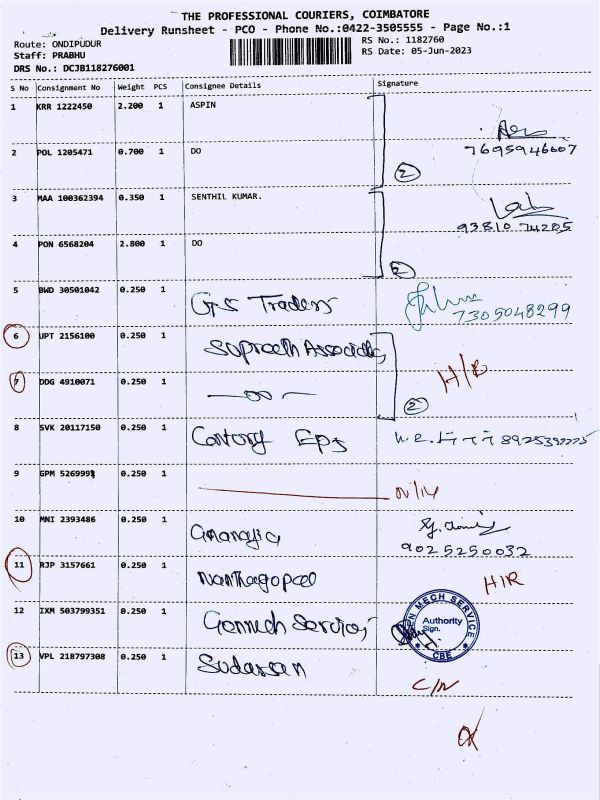 THE PROFESSIONAL COURIERS, COIMBATORE
Delivery Runsheet - PCO - Phone No.:0422-3505555 - Page No.:1
Route: ONDIPUDUR
RS No.: 1182760
Staff: PRABHU
RS Date: 05-Jun-2023
DRS No.: DCJB118276001
S No Consignment No Weight PCS Consignee Details Signature
1 KRR 1222450 2.200 1 ASPIN
2 POL 1205471 0.700 1 DO 7695946607
2
3 MAA 100362394 0.350 1 SENTHIL KUMAR.
93810 74205
4 PON 6568204 2.800 1 DO
2
5 BWD 30501042 0.250 1 G.S Traders 7305048299
6 UPT 2156100 0.250 1 Supreeth Associates
7 DDG 4910071 0.250 1 — DO — H/R
2
8 SVK 20117150 0.250 1 Century Eps
9 GPM 5269991 0.250 1
10 MNI 2393486 0.250 1
9025250032
11 RJP 3157661 0.250 1 Nanthagopal H/R
12 IXM 503799351 0.250 1 Gemmech Services
MECH SERVICE
Authority
Sign.
CBE
13 VPL 218797308 0.250 1 Sudarsan
C/N